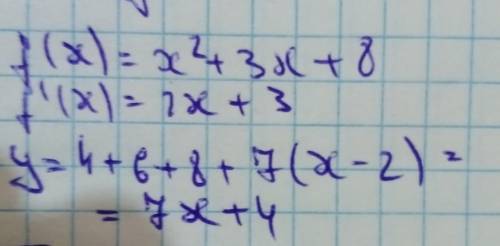 f(x) = x² + 3x + 8
f'(x) = 2x + 3
y = 4 + 6 + 8 + 7(x - 2) =
= 7x + 4